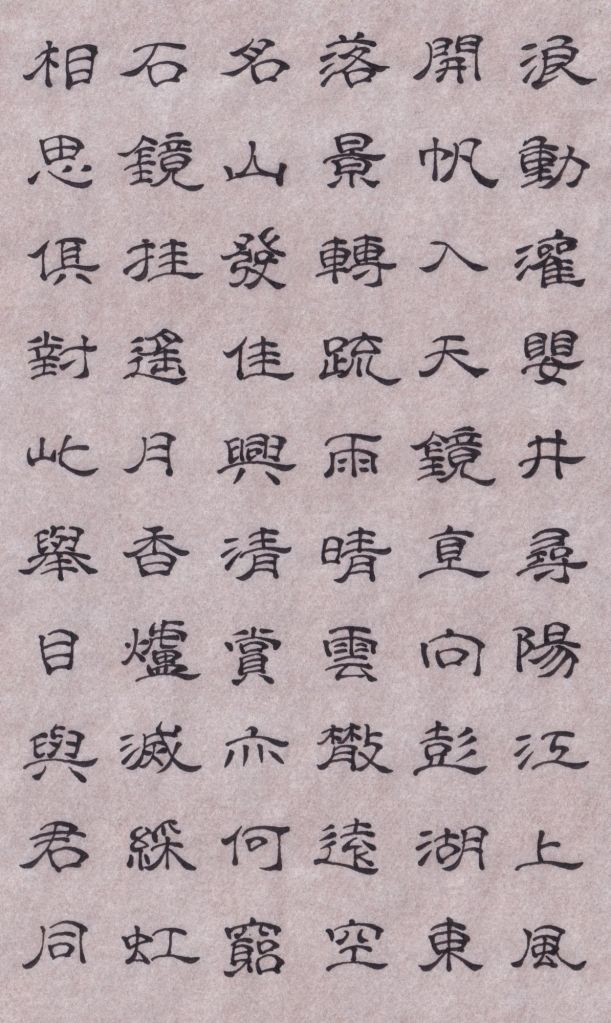 浪動灌嬰井尋陽江上風
開帆入天鏡直向彭湖東
落景轉疏雨晴雲散遠空
名山發佳興清賞亦何窮
石鏡挂遙月香爐滅綵虹
相思俱對此舉目與君同